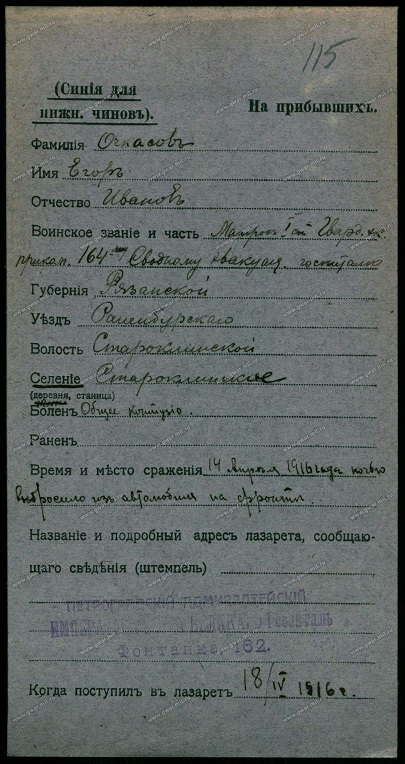 115
(Синія для
нижн. чиновъ).
На прибывшихъ.
Фамилія Очкасовъ
Имя Егоръ
Отчество Ивановъ
Воинское званіе и часть Матросъ Гвард. эк
приком. 164 Сводному эвакуац. госпиталю
Губернія Рязанской
Уѣздъ Раненбургскаго
Волость Староклинской
Селеніе Староклинское
(деревня, станица)
Боленъ Общее контузіо.
Раненъ
Время и мѣсто сраженія 14 Апрѣля 1916 года ночью
выбросило изъ автомобиля на фронтѣ.
Названіе и подробный адресъ лазарета, сообщаю-
щаго свѣдѣнія (штемпель)
ПЕТРОГРАДСКІЙ
Фонтанка, 162.
Когда поступилъ въ лазаретъ 18/IV 1916 г.